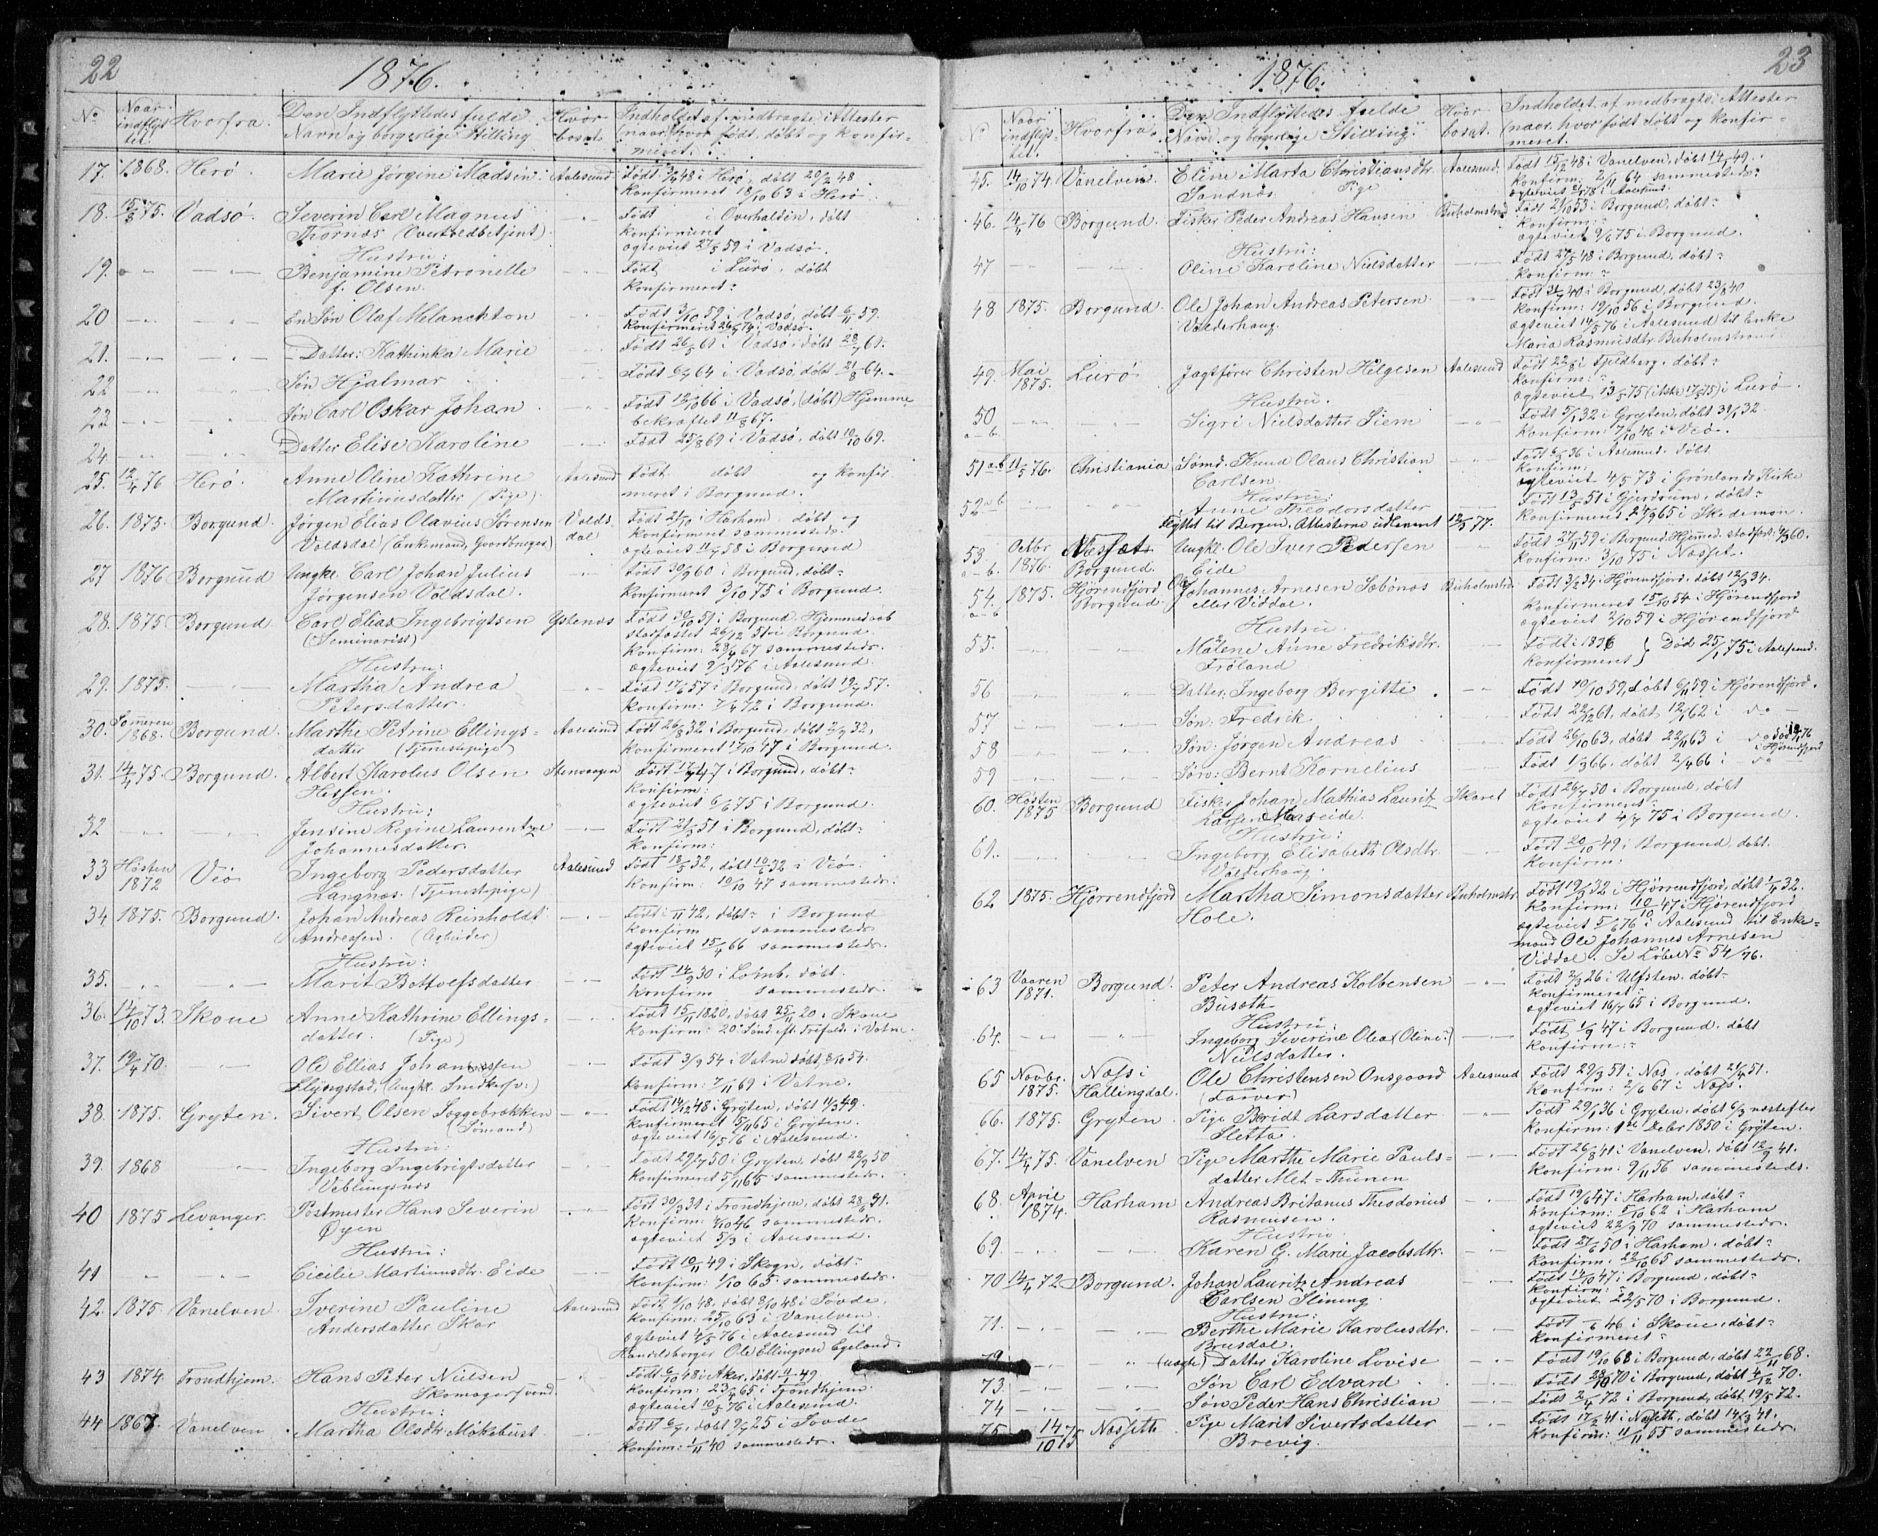 22
1876.
No
Naar indflyt- tet.
Hvorfra.
Den Indflyttedes fulde
Navn og borgerlige Stilling
Hvor bosat.
Indholdet af medbragte Attester
(naar, hvor født, døbt og konfir-
meret.
17. 1868. Herø Marie Jørgine Madsen Aalesund Født 48 i Herø, døbt 20/2 48
Konfirmeret 18/10 63 i Herø
18. 15/5 75. Vadsø Severin Carl Magnus Født i Overhalden, døbt
Thornæs (Overtoldbetjent) Konfirmeret
Hustru: ægteviet 27/5 59 i Vadsø
19. Benjamine Petronelle Født i Lurø, døbt
f. Olsen. Konfirmeret:
20 En Søn Olaf Melanckton Født 3/10 59 i Vadsø, døbt 6/11 59.
Konfirmeret 26/7 74 i Vadsø
21. Datter: Kathinka Marie Født 26/5 61 i Vadsø, døbt 28/7 61.
22 Søn Hjalmar Født 6/7 64 i Vadsø, døbt 21/8 64.
23 Søn Carl Oskar Johan Født 12/10 66 i Vadsø, (døbt) Hjemme
bekræftet 11/8 67.
24 Datter Elise Karoline Født 25/8 69 i Vadsø, døbt 10/10 69.
25. 12/4 76 Herø Anne Oline Kathrine Aalesund Født døbt og konfir
Martinusdatter (Pige) meret i Borgund.
26. 1875. Borgund. Jørgen Elias Olavius Sørensen Volds- Født 21/10 i Harham, døbt og
Voldsdal (Enkemand, Gaardbruger) dal Konfirmeret sammesteds.
ægteviet 11/7 58 i Borgund
27 1876 Borgund Ungk. Carl Johan Julius Født 30/9 60 i Borgund, døbt
Jørgensen Voldsdal. Konfirmeret 3/10 75 i Borgund.
28. 1875 Borgund Carl Elias Ingebrigtsen Ystenæs Født 30/10 51 i Borgund Hjemmedaab
(Seminarist) stadfæstet 26/12 51 i Borgund.
Konfirm: 28/4 67 sammesteds.
Hustru: ægteviet 9/5 76 i Aalesund.
29. 1875. Martha Andrea Født 17/6 57 i Borgund, døbt 19/7 57.
Petersdatter. Konfirm: 7/4 72 i Borgund.
30. Someren 1868. Borgund. Marthe Petrine Ellings- Aalesund Født 26/8 32 i Borgund, døbt 2/9 32,
datter (Tjenestepige) Konfirmeret 17/10 47 i Borgund.
31. 14/4 75 Borgund. Albert Karolus Olsen Stenvaagen Født 17/4 47 i Borgund, døbt
Hessen. Konfirm:
Hustru: ægteviet 6/6 75 i Borgund.
32 Jensine Regine Laurentze Født 21/5 51 i Borgund, døbt
Johannesdatter. Konfirm:
33 Høsten 1872 Veø Ingeborg Pedersdatter Aalesund Født 18/5 32, døbt 10/6 32 i Veø.
Langnæs (Tjenestepige) Konfirm: 10/10 47 sammesteds.
34 1875. Borgund. Johan Andreas Reinholdt Født 42, døbt i Borgund
Andresen. (Arbeider) Konfirm sammesteds
Hustru: ægteviet 15/4 66 sammesteds.
35. Marit Bottolfsdatter Født 14/9 30 i Lomb, døbt
Konfirm sammesteds.
36. 14/10 73. Skoue Anne Kathrine Ellings- Født 15/11 1820, døbt 25/11 20 i Skoue
datter. (Pige) Konfirm: 20 Sønd. eft. Trefold. i Vatne.
37. 19/4 70. Ole Ellias Johannessen Født 3/9 54 i Vatne døbt 8/10 54.
Flyingstad, (Ungk. Snedkersv:) Konfirm: 7/11 69 i Vatne.
38. 1875. Gryten. Sivert Olsen Soggebrækken Født 14/12 48 i Gryten, døbt 11/3 49.
(Sømand) Konfirmeret 5/11 65 i Gryten.
Hustru: ægteviet 16/5 76 i Aalesund.
39. 1868 Ingeborg Ingebrigtsdatter Født 29/7 50 i Gryten, døbt 22/9 50
Veblungsnæs Konfirmeret 5/11 65 sammesteds.
40 1875 Levanger. Postmester Hans Severin Født 30/3 31 i Trondhjem, døbt 28/6 31.
Øyen Konfirm: 4/10 46 sammesteds.
Hustru: ægteviet 5/3 i Aalesund.
41 Cicilie Martinusdtr. Eide Født 10/11 49 i Skogn, døbt
Konfirm: 1/10 65 sammesteds.
42. 1875. Vanelven. Iverine Pauline Aalesund Født 1/10 48. døbt 8/10 48 i Søvde
Andersdatter Skor Konfirm: 25/10 63 i Vanelven
ægteviet 4/5 76 i Aalesund til
Handelsborger Ole Ellingsen Egeland.
43 1874. Trondhjem. Hans Peter Nielsen Født 6/10 48 i Aker, døbt 1/1 49
Skomagersvend. Konfirm: 23/4 65 i Trondhjem
Hustru: ægteviet 10/5 76 i Aalesund.
44 1867. Vanelven Martha Olsdtr. Møkeburst Født , døbt 9/7 25 i Søvde
Konfirm: 1/11 40 sammesteds.
23
1876.
No
Naar indflyt- tet.
Hvorfra
Den Indflyttedes fulde
Navn og borgerlige Stilling.
Hvor bosat.
Indholdet af medbragte Attester
(naar, hvor født døbt og konfir-
meret.
45. 14/10 74. Vanelven. Eline Marta Christiansdtr. Aalesund. Født 15/12 48 i Vanelven, døbt 14/1 49.
Sandnæs Pige Konfirm: 2/11 64 sammesteds.
ægteviet 78 i Aalesund.
46. 14/4 76 Borgund. Fisker Peder Andreas Hansen Buholmstrd. Født 21/10 53 i Borgund, døbt
Konfirm:
Hustru: ægteviet 9/6 75 i Borgund.
47 Oline Karoline Nielsdatter Født 27/5 48 i Borgund, døbt
Konfirm:
48 1875. Borgund. Ole Johan Andreas Petersen Født 40 i Borgund, døbt 23/8 40
Valderhaug. Konfirm: 19/10 56 i Borgund.
ægteviet 14/5 76 i Aalesund til Enke
Maria Rasmusdtr. Buholmstrand
49. Mai 1875. Lurø Jagtfører Christen Helgesen Aalesund Født 22/8 i Tjeldberg, døbt
Konfirm:
Hustru. ægteviet 13/5 75 i Lurø.
50 a-b. Sigri Nielsdatter Siem Født 5/1 32 i Gryten, døbt 32
Konfirm: 7/10 46 i Veø.
51 a-b 11/5 76. Christiania Sømd. Knud Olaus Christian Født 36 i Aalesund. døbt
Carlsen Konfirm:
Hustru: ægteviet 4/5 73 i Grønlands Kirke
52 a-b Anne Theodorsdatter Født 13/5 51 i Gjerdrum, døbt
Konfirmeret 24/9 65 i Skedsmon.
Flyttet til Bergen, Attesterne udleveret 12/5 77.
53 a-b. Octbr 1876. Næsset Borgund. Ungk: Ole Iver Pedersen Født 27/11 59 i Borgund, Hjemmed. stadfæst. 60.
Eide Konfirm: 3/10 75 i Næsset.
54. a-b 1875. Hjørendfjord Borgund Ole Johannes Arnesen Sæbønæs Buholmstrd. Født 3/2 34 i Hjørendfjord, døbt 12/2 34.
eller Viddal. Konfirmeret 15/10 54 i Hjørendfjord
Hustru: ægteviet 2/10 59 i Hjørendfjord
55. Malene Anne Fredriksdtr. Født i 1836 } Død 25/1 75 i Aalesund.
Frøland Konfirmeret
56 Datter, Ingeborg Bergitte Født 10/10 59, døbt 6/11 59 i Hjørendfjord.
57 Søn: Fredrik Født 22/12 61, døbt 12/1 62 i do
58 Søn: Jørgen Andreas Født 26/10 63, døbt 22/11 63 i do død 76 i Hjørendfjord
59 Søn: Bernt Kornelius Født 1/3 66, døbt 2/4 66 i do
60. Høsten 1875 Borgund Fisker Johan Mathias Lauritz Skaret Født 26/7 50 i Borgund, døbt
Larsen Mauseide. Konfirmeret:
Hustru: ægteviet 4/7 75 i Borgund.
61. Ingeborg Elisabeth Olsdtr. Født 20/10 49 i Borgund, døbt
Valderhaug. Konfirm:
62 1875. Hjørrendfjord Martha Simonsdatter Buholmstr. Født 19/2 32 i Hjørrendfjord, døbt 1/4 32.
Hole. Konfirm: 10/10 47 i Hjørrendfjord
ægteviet 5/6 76 i Aalesund til Enke-
mand Ole Johannes Arnesen
Viddal. Se Løbe No 54/76.
63 Vaaren 1871. Borgund. Peter Andreas Kolbensen Født 2/3 26 i Ulfsten, døbt
Buseth Konfirmeret:
Hustru: ægteviet 16/7 65 i Borgund.
64. Ingeborg Severine Olea (Oline) Født 1/9 47 i Borgund. døbt
Nielsdatter. Konfirm:
65 Novbr. 1875. Næss i Hallingdal. Ole Christensen Onsgaard Aalesund Født 29/3 51 i Næs, døbt 21/4 51.
(Farver) Konfirm: 2/6 67 i Næss.
66. 1875. Gryten. Pige Beridt Larsdatter Født 29/1 36 i Gryten, døbt 6/3 næstefter
Sletta. Konfirm: 1ste Debr 1850 i Gryten.
67. 14/4 75. Vanelven Pige Marthe Marie Pauls- Født 26/8 41 i Vanelven, døbt 12/9 41.
datter Met-Thunem Konfirm: 9/11 56 sammesteds.
68. April 1874. Harham Andreas Britanus Theodorius Født 19/6 47 i Harham, døbt
Rasmussen. Konfirm: 5/10 62 i Harham
Hustru ægteviet 22/9 70 sammesteds.
69. Karen G. Marie Jacobsdtr. Født 27/6 50 i Harham. døbt
Konfirm: 22/10 65 sammesteds.
70 14/4 72 Borgund. Johan Lauritz Andreas Født 14/10 47 i Borgund, døbt
Carlsen Slining. Konfirm:
Hustru: ægteviet 22/5 70 i Borgund.
71. Berthe Marie Karolusdtr. Født 46 i Skoue, døbt
Brusdal. Konfirmeret:
72 (uægte) Datter Karoline Lovise Født 19/10 68 i Borgund, døbt 22/11 68.
73. Søn Carl Edvard Født 28/10 70 i Borgund, døbt 4/12 70.
74 Søn Peder Hans Christian Født 2/4 72 i Borgund, døbt 19/5 72.
75. 14/10 75 Næsseth. Pige Marit Sivertsdatter Født 17/2 41 i Næsseth, døbt 14/3 41.
Brevig. Konfirm: 11/11 55 sammesteds.